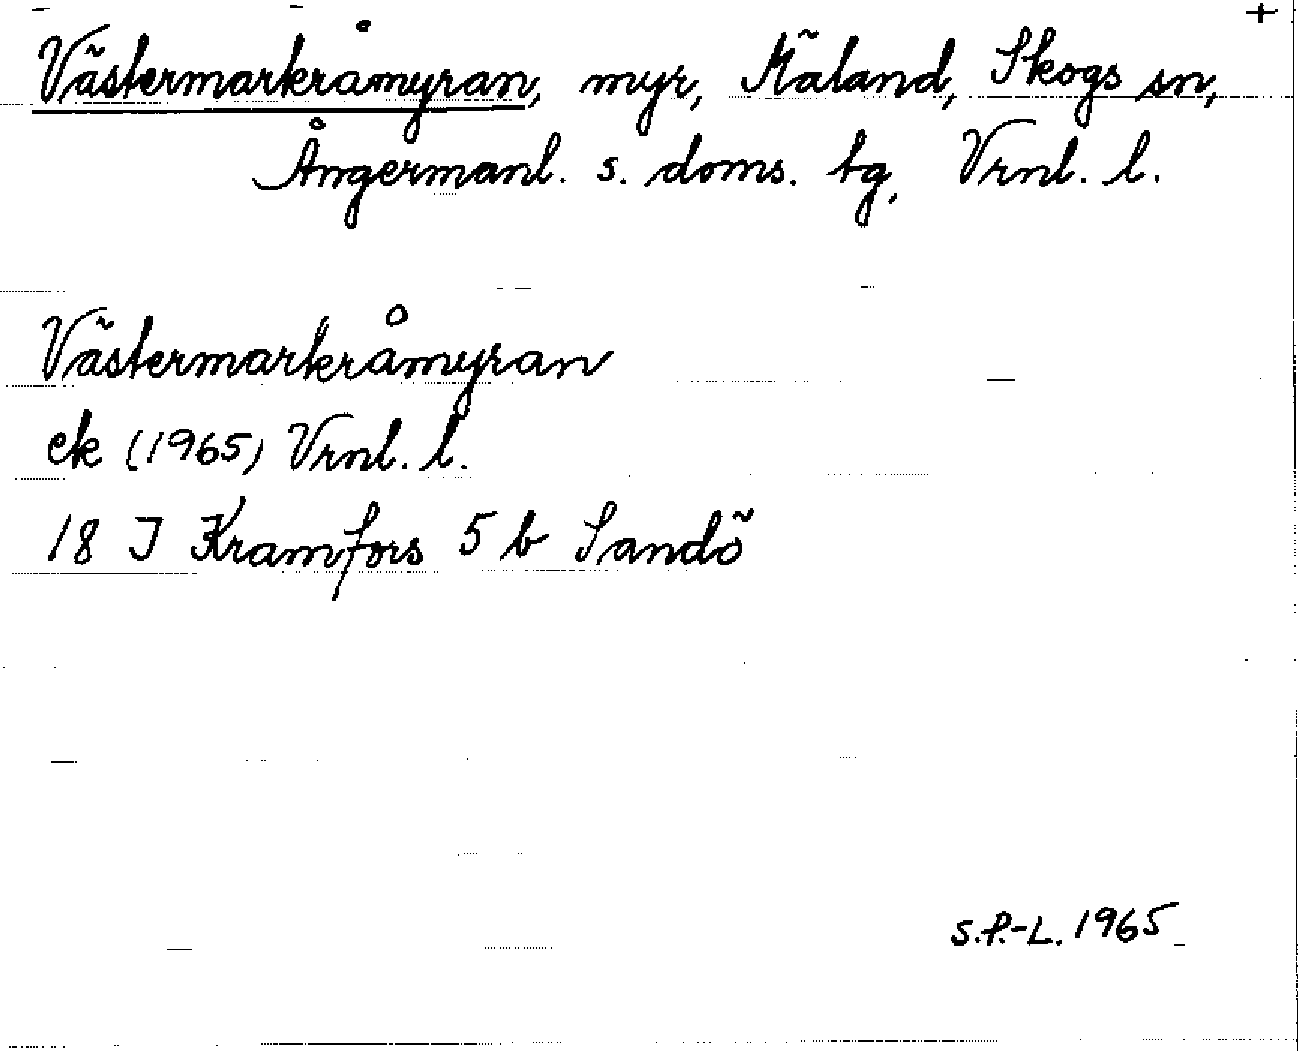 +
Västermarkråmyran, myr, Käland, Skogs sn,
Ångermanl. s. doms. tg, Vrnl. l.
Västermarkråmyran
ek (1965) Vrnl. l.
18 J Kramfors 5 b Sandö
S.P.-L. 1965